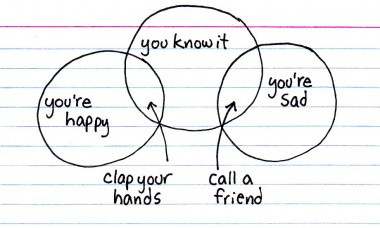 you know it
you're
happy
you're
sad
clap your
hands
call a
friend